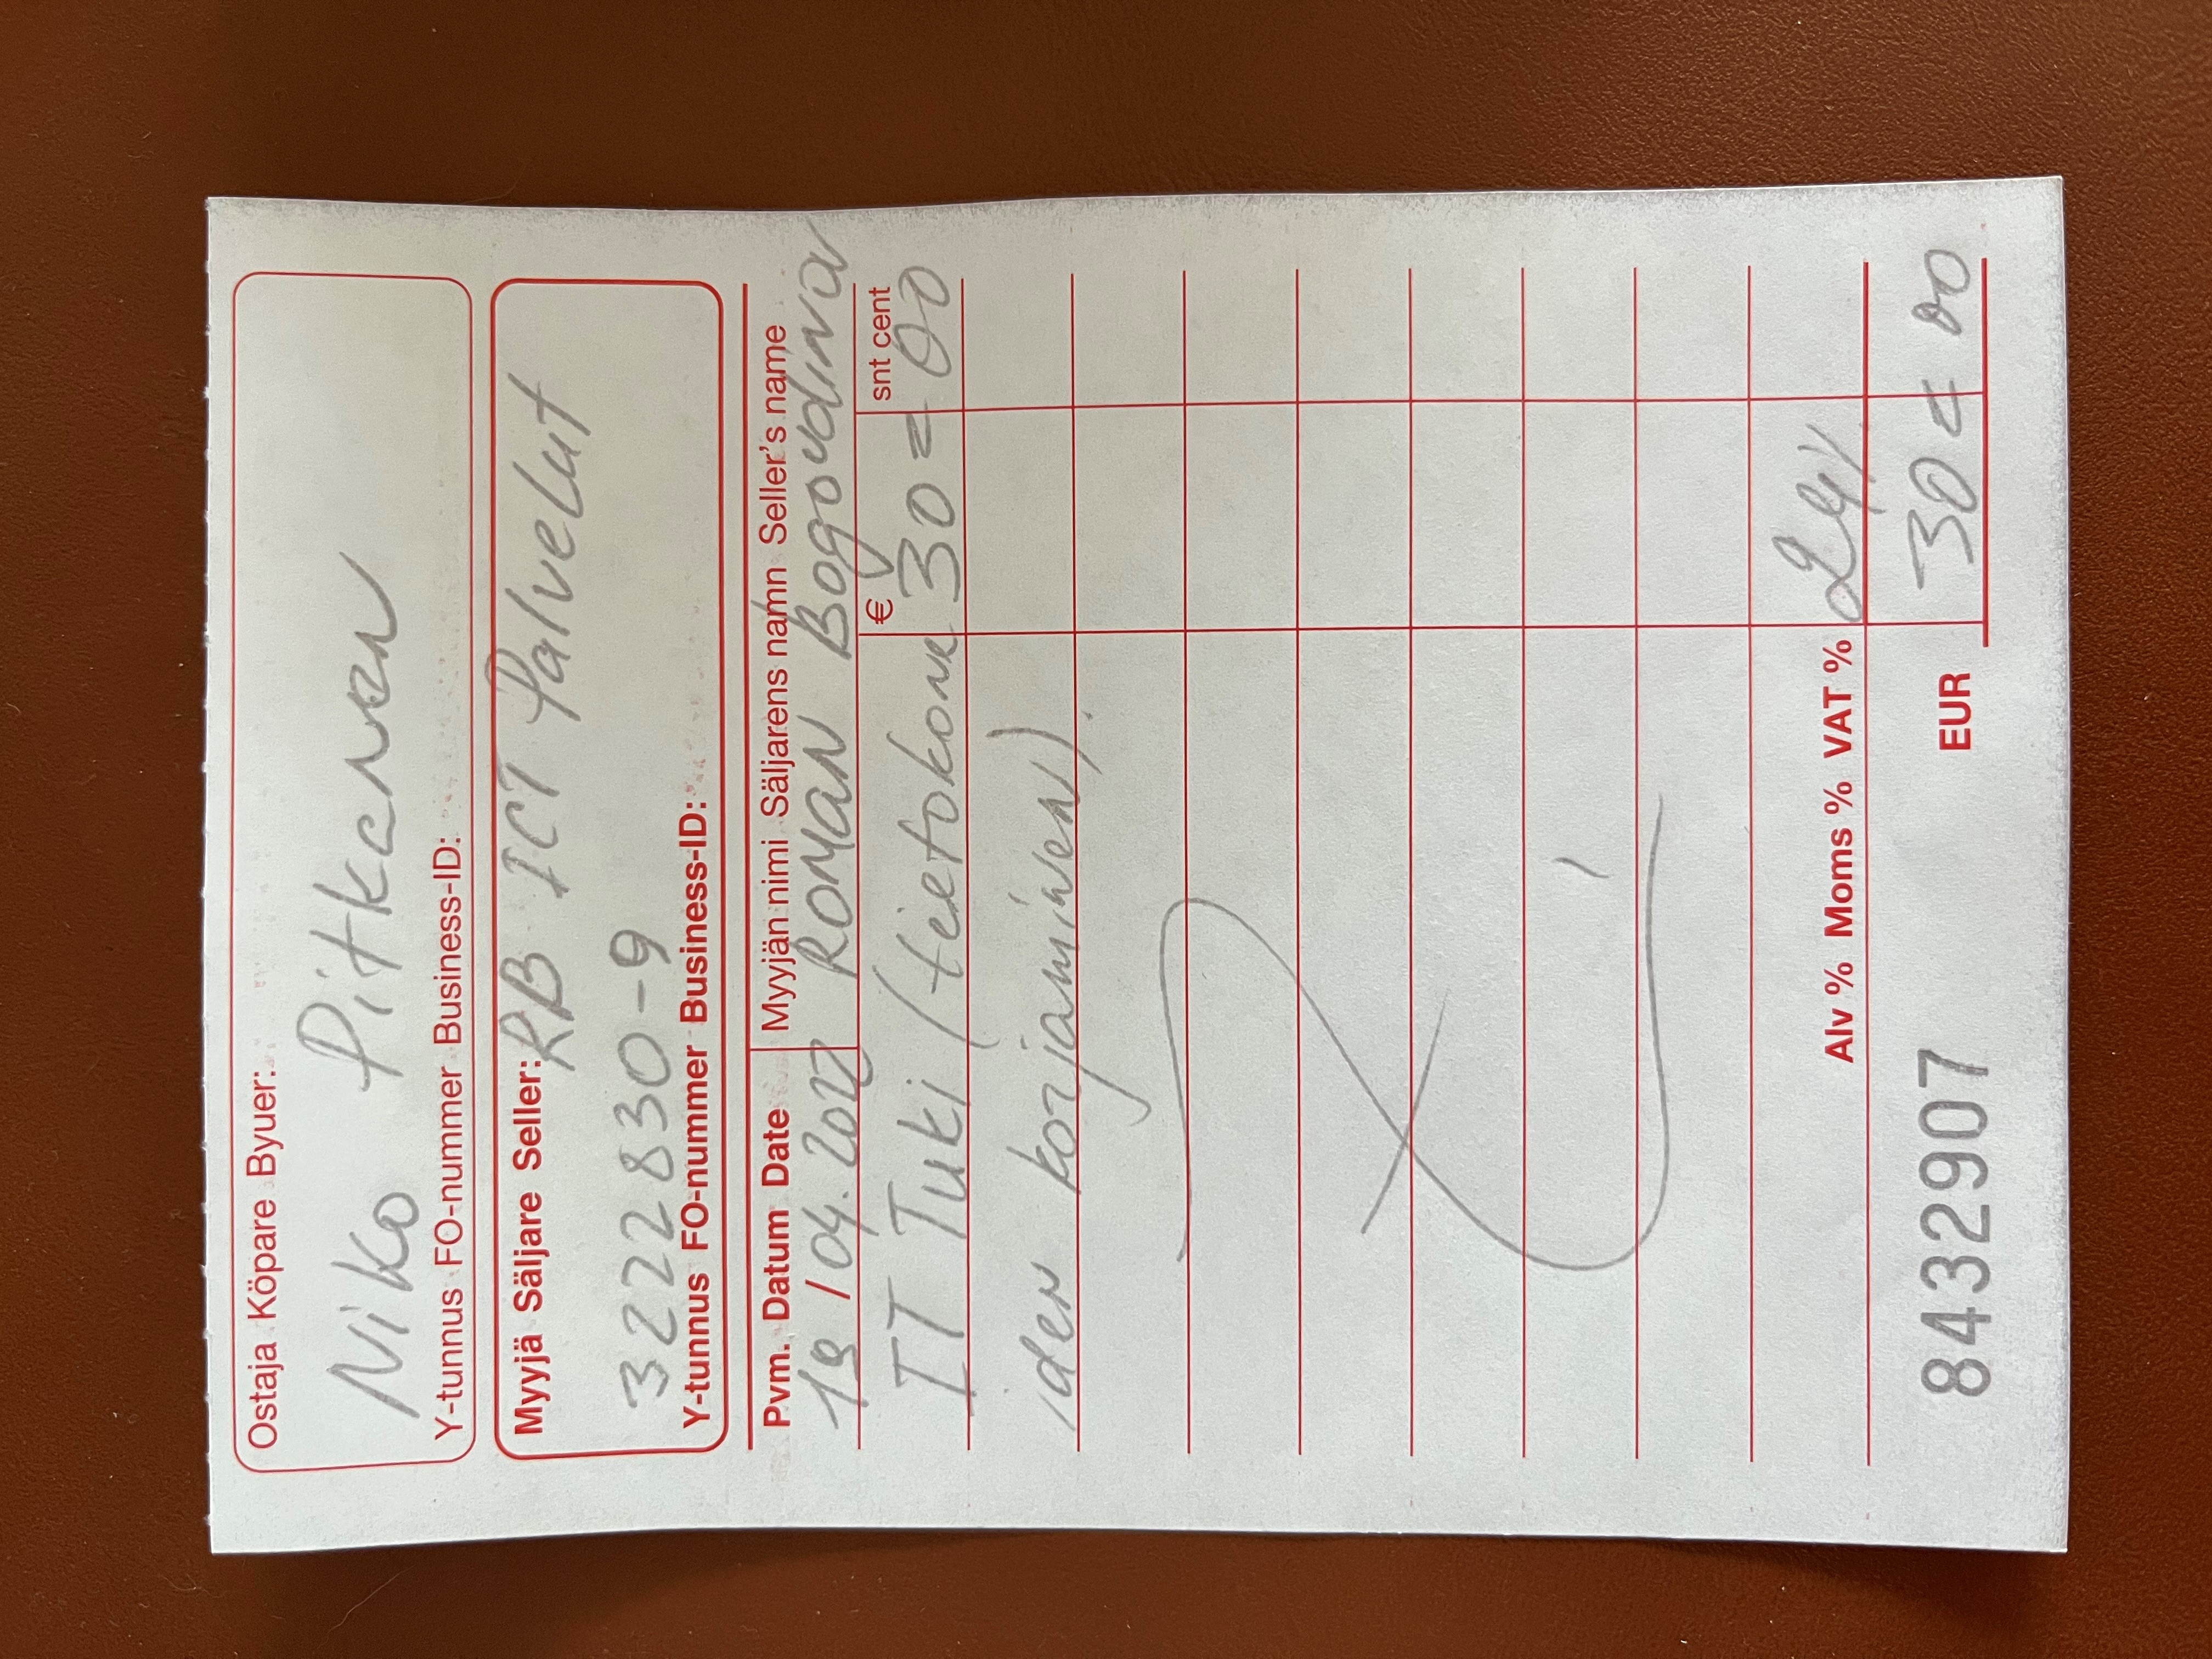 Ostaja Köpare Byuer:
Niko Pitkanen
Y-tunnus FO-nummer Business-ID:
Myyjä Säljare Seller: RB ICT Palvelut
3222830-9
Y-tunnus FO-nummer Business-ID:
Pvm. Datum Date Myyjän nimi Säljarens namn Seller's name
19 / 04. 2022 ROMAN Bogoudinov
€ snt cent
IT Tuki (tietokone 30 = 00
iden korjaminen).
Alv % Moms % VAT % 24%
8432907 EUR 30 = 00